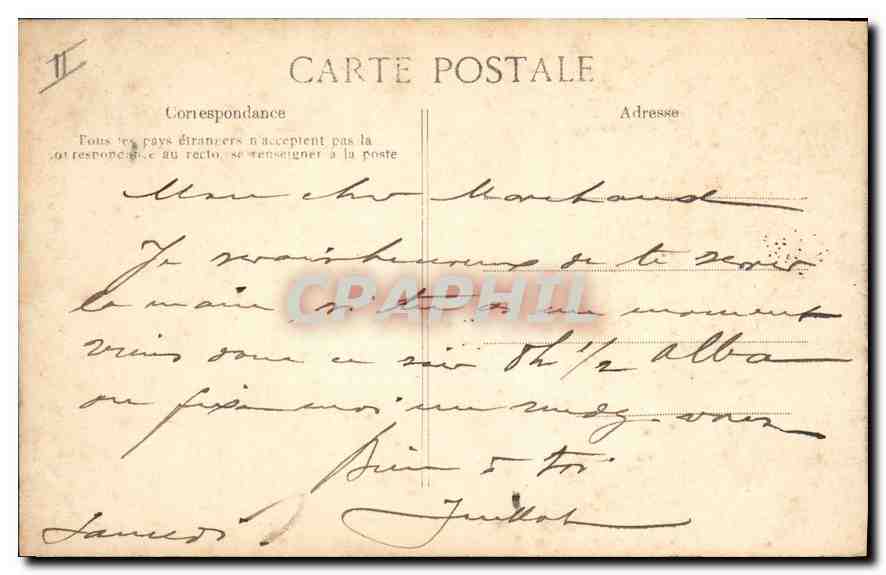 II
CARTE POSTALE
Correspondance
Adresse
Tous les pays étrangers n'acceptent pas la
correspondance au recto, se renseigner à la poste
Mon cher Marchand
Je serais heureux de te serrer
la main, si tu as un moment
viens donc ce soir 8h 1/2 Alba
ou fixe-moi un rendez-vous
Bien à toi
Juillot
Samedi
CPAPHIL